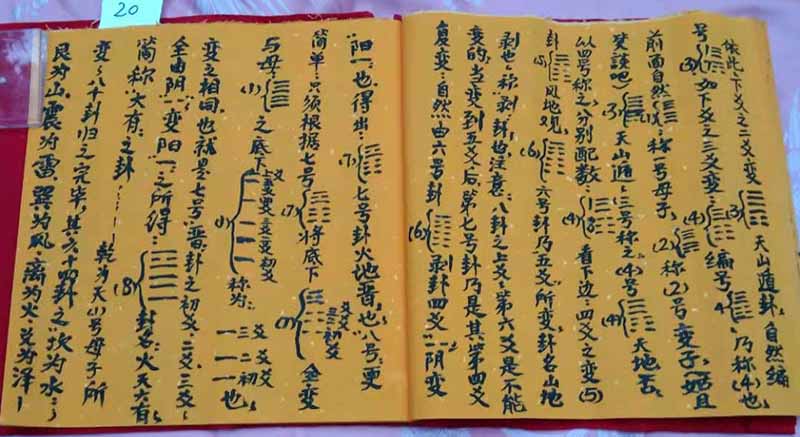 20
依此、下爻之二爻变 (3) 天山遁卦、自然编
号 (3) 如下爻之三爻变 (4) 编号 4 乃称(4)也、
前面自然 称一号母子、(2)称(2)号变子、(姑且
(3) 天山遁、三号称之、(4)号 (4) 天地否、
以四号称之、分别配数、(4) 看下边、四爻之变(5)
卦 (5) 风地观、(6) 六号卦乃五爻、所变卦名山地
剥也、称剥卦也、注意、八卦之上爻、第六爻是不能
变的、当变到五爻后、第七号卦乃是其第四爻
复变、自然由六号卦 (6) 剥卦四爻"阴变
"阳一、也、得出、(7) 七号卦火地晋、也、八号、更
简单、只须根据七号 (7) 将底下 爻爻 三二初爻 全变
与母、(1) 之底下 (1) 称为、一三爻 一二爻 一初爻 也、
变之相同、也就是七号、晋、卦之初爻、二爻、三爻、
全由阴、一变阳、一之所得、(8) 卦名、火天大有、
简称、大有、之卦、…… 乾为天一号母子所
变、八个卦归之完毕、其六十四卦之、坎为水、
艮为山、震为雷、巽为风、离为火、兑为泽一